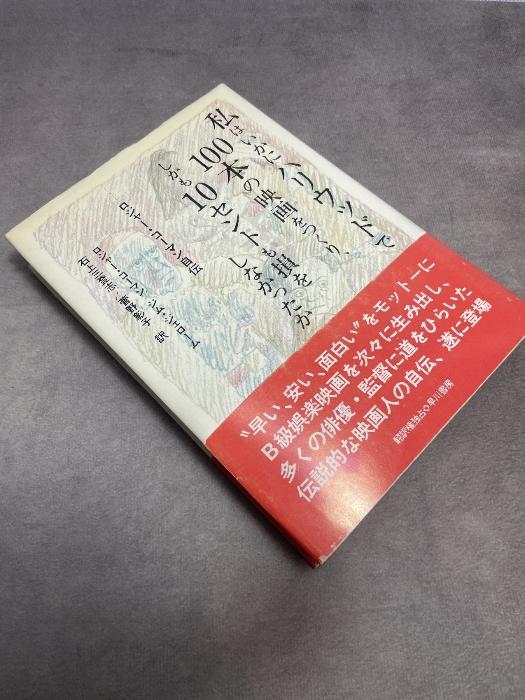 私はいかにハリウッドで
100本の映画をつくり、
しかも10セントも損を
しなかったか
ロジャー・コーマン自伝
ロジャー・コーマン ジム・ジェローム
石上三登志・菅野彰子 訳
“早い、安い、面白い”をモットーに
B級娯楽映画を次々に生み出し、
多くの俳優・監督に道をひらいた
伝説的な映画人の自伝、遂に登場
翻訳権独占◇早川書房